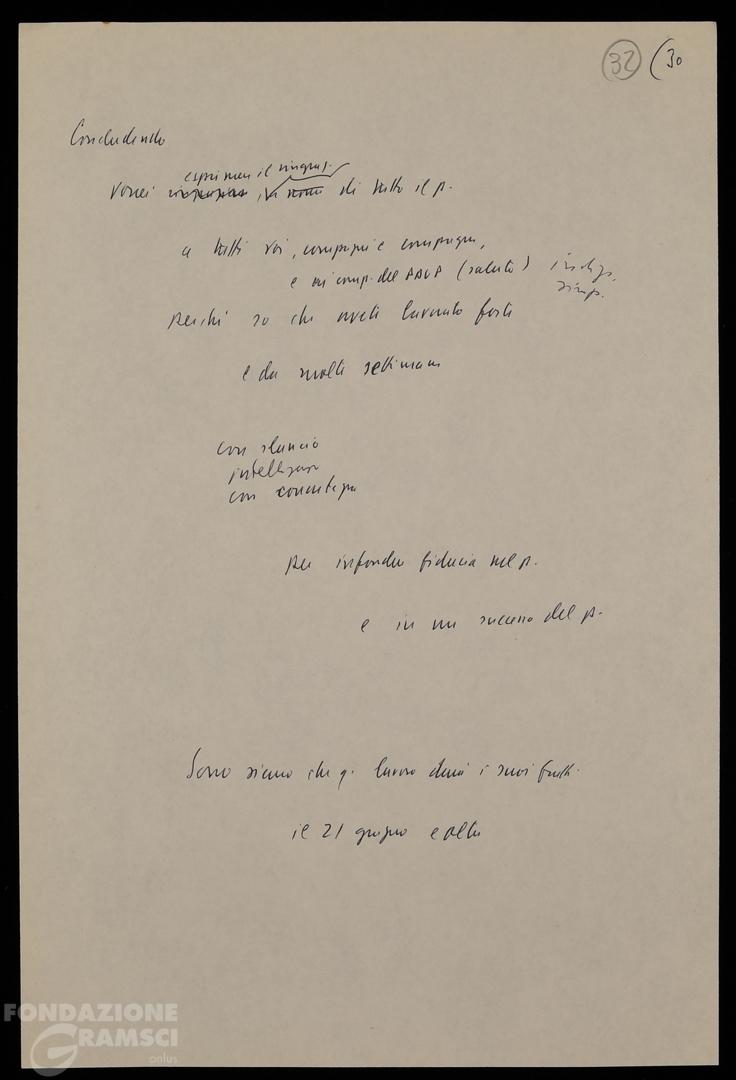 32 (30
Concludendo
esprimere il ringraz.
vorrei ringraziare in nome di tutto il p.
a tutti voi, compagni e compagne,
e ai comp. del PDUP (saluto)
simp.
perché so che avete lavorato forte
e da molte settimane
con slancio
intelligenza
con
per infondere fiducia nel p.
e in un successo del p.
Sono sicuro che q. lavoro darà i suoi frutti.
il 21 giugno e oltre
FONDAZIONE
GRAMSCI
onlus